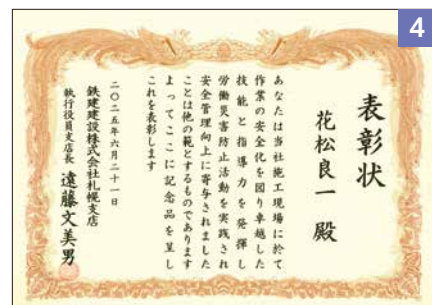 4
表彰状
花松良一 殿
あなたは当社施工現場に於て
作業の安全化を図り卓越した
技能と指導力を発揮し
労働災害防止活動を実践され
安全管理向上に寄与されました
ことは他の範とするものであります
よってここに記念品を呈し
これを表彰します
二〇二五年六月二十一日
鉄建建設株式会社札幌支店
執行役員支店長 遠藤文美男